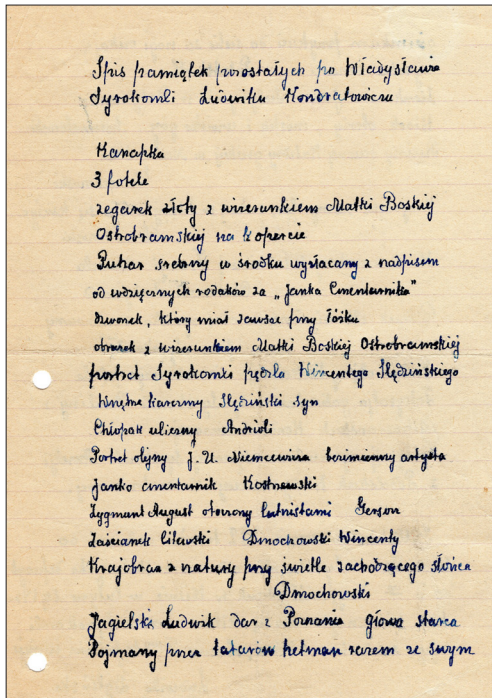 Spis pamiątek pozostałych po Władysławie
Syrokomli Ludwiku Kondratowiczu
Kanapka
3 fotele
zegarek złoty z wizerunkiem Matki Boskiej
Ostrobramskiej na kopercie
Puhar srebrny w środku wyzłacany z nadpisem
od wdzięcznych rodaków za „Janka Cmentarnika"
dzwonek, który miał zawsze przy łóżku
obrazek z wizerunkiem Matki Boskiej Ostrobramskiej
portret Syrokomli pędzla Wincentego Ślędzińskiego
Wnętrze karczmy Ślędziński syn
Chłopak uliczny Andrioli
Portret olejny J. U. Niemcewicza bezimienny artysta
Janko cmentarnik Kostrzewski
Zygmunt August otoczony lutnistami Gerson
Zaścianek litewski Dmochowski Wincenty
Krajobraz z natury przy świetle zachodzącego słońca
Dmochowski
Jagielski Ludwik dar z Poznania głowa starca
Pojmany przez tatarów hetman razem ze swym